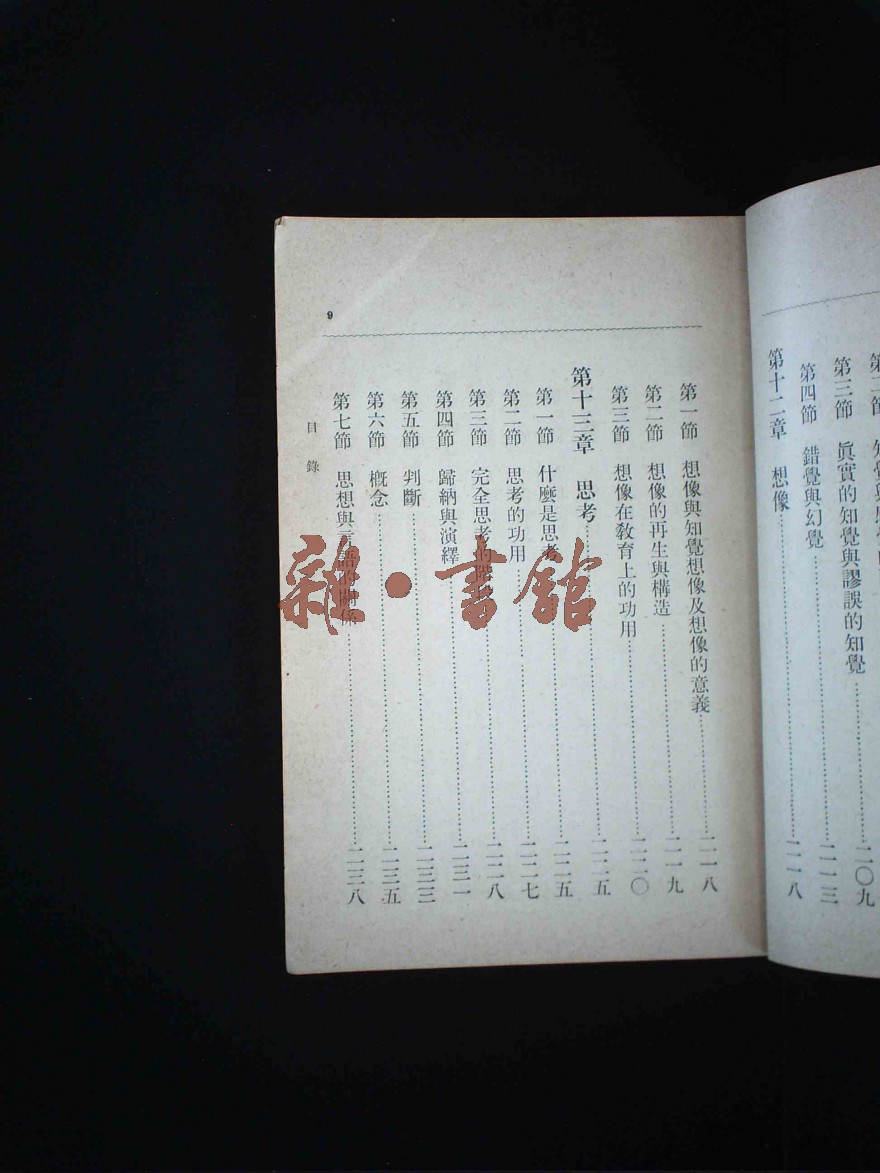 第二節 知覺與
第三節 眞實的知覺與謬誤的知覺……二〇九
第四節 錯覺與幻覺……二一三
第十二章 想像……二一八
第一節 想像與知覺想像及想像的意義……二一八
第二節 想像的再生與構造……二一九
第三節 想像在敎育上的功用……二二〇
第十三章 思考……二二五
第一節 什麼是思考……二二五
第二節 思考的功用……二二七
第三節 完全思考的階段……二二八
第四節 歸納與演繹……二三一
第五節 判斷……二三三
第六節 概念……二三五
第七節 思想與言語的關係……二三八
目錄
9
雜·書館